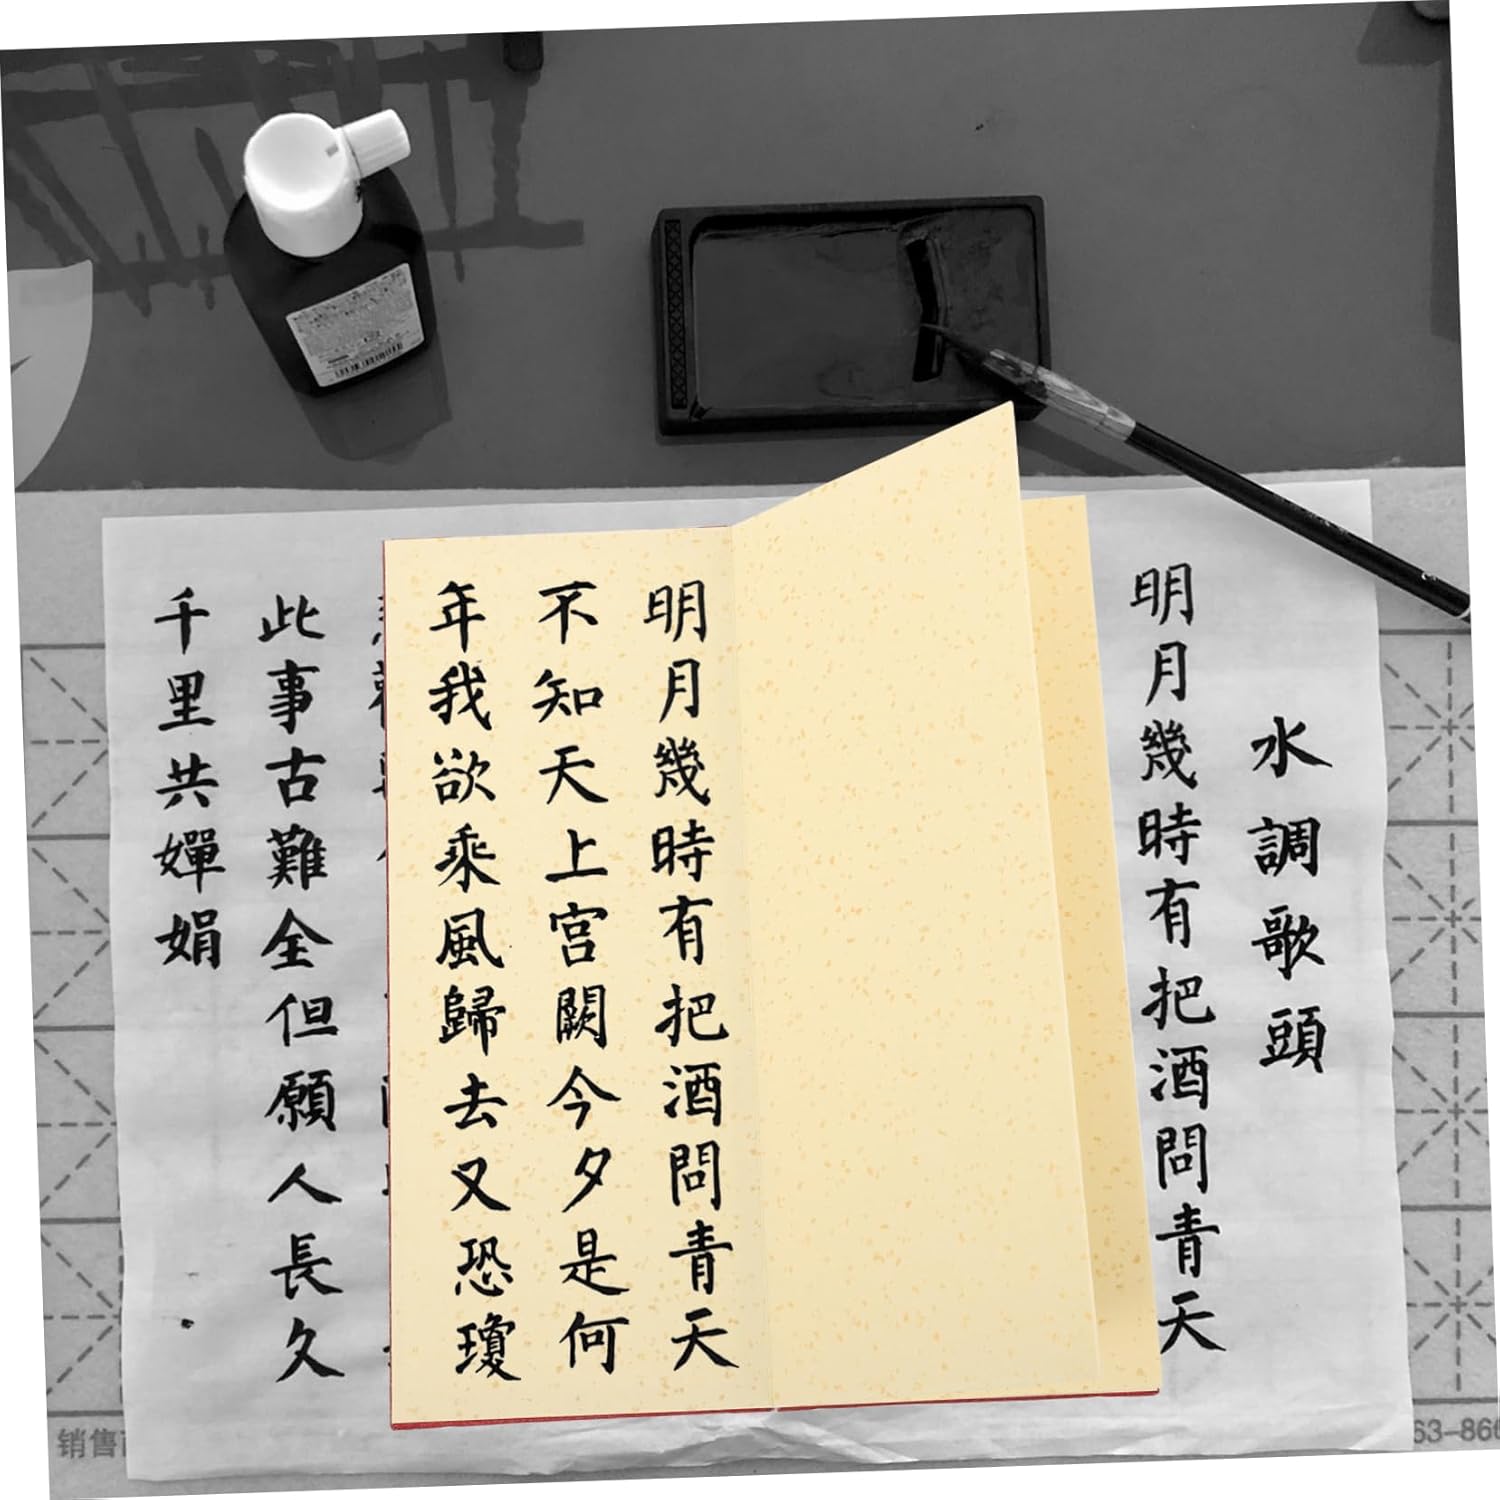 水調歌頭
明月幾時有把酒問青天
明月幾時有把酒問青天
不知天上宮闕今夕是何
年我欲乘風歸去又恐瓊
此事古難全但願人長久
千里共嬋娟
销售
63-866